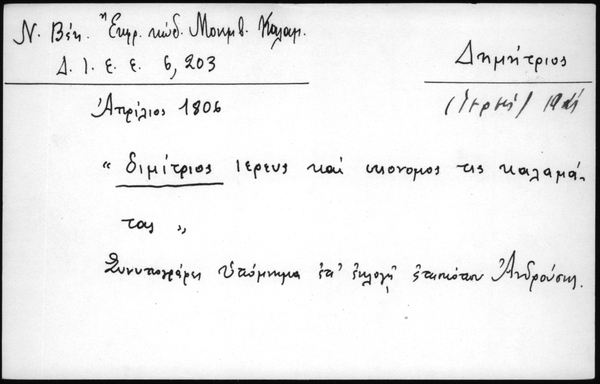 Ν. Βέη. Ἔκφρ. κώδ. Μονεμβ. Καλαμ.
Δ. Ι. Ε. Ε. 6, 203
Δημήτριος
Ἀπρίλιος 1806
(Ἱερεύς)
" διμίτριος ιερευς και ικονομος τις καλαμά-
τας "
Συνυπογράφει ὑπόμνημα ἐπ' ἐκλογῇ ἐπισκόπου Ἀνδρούσης.